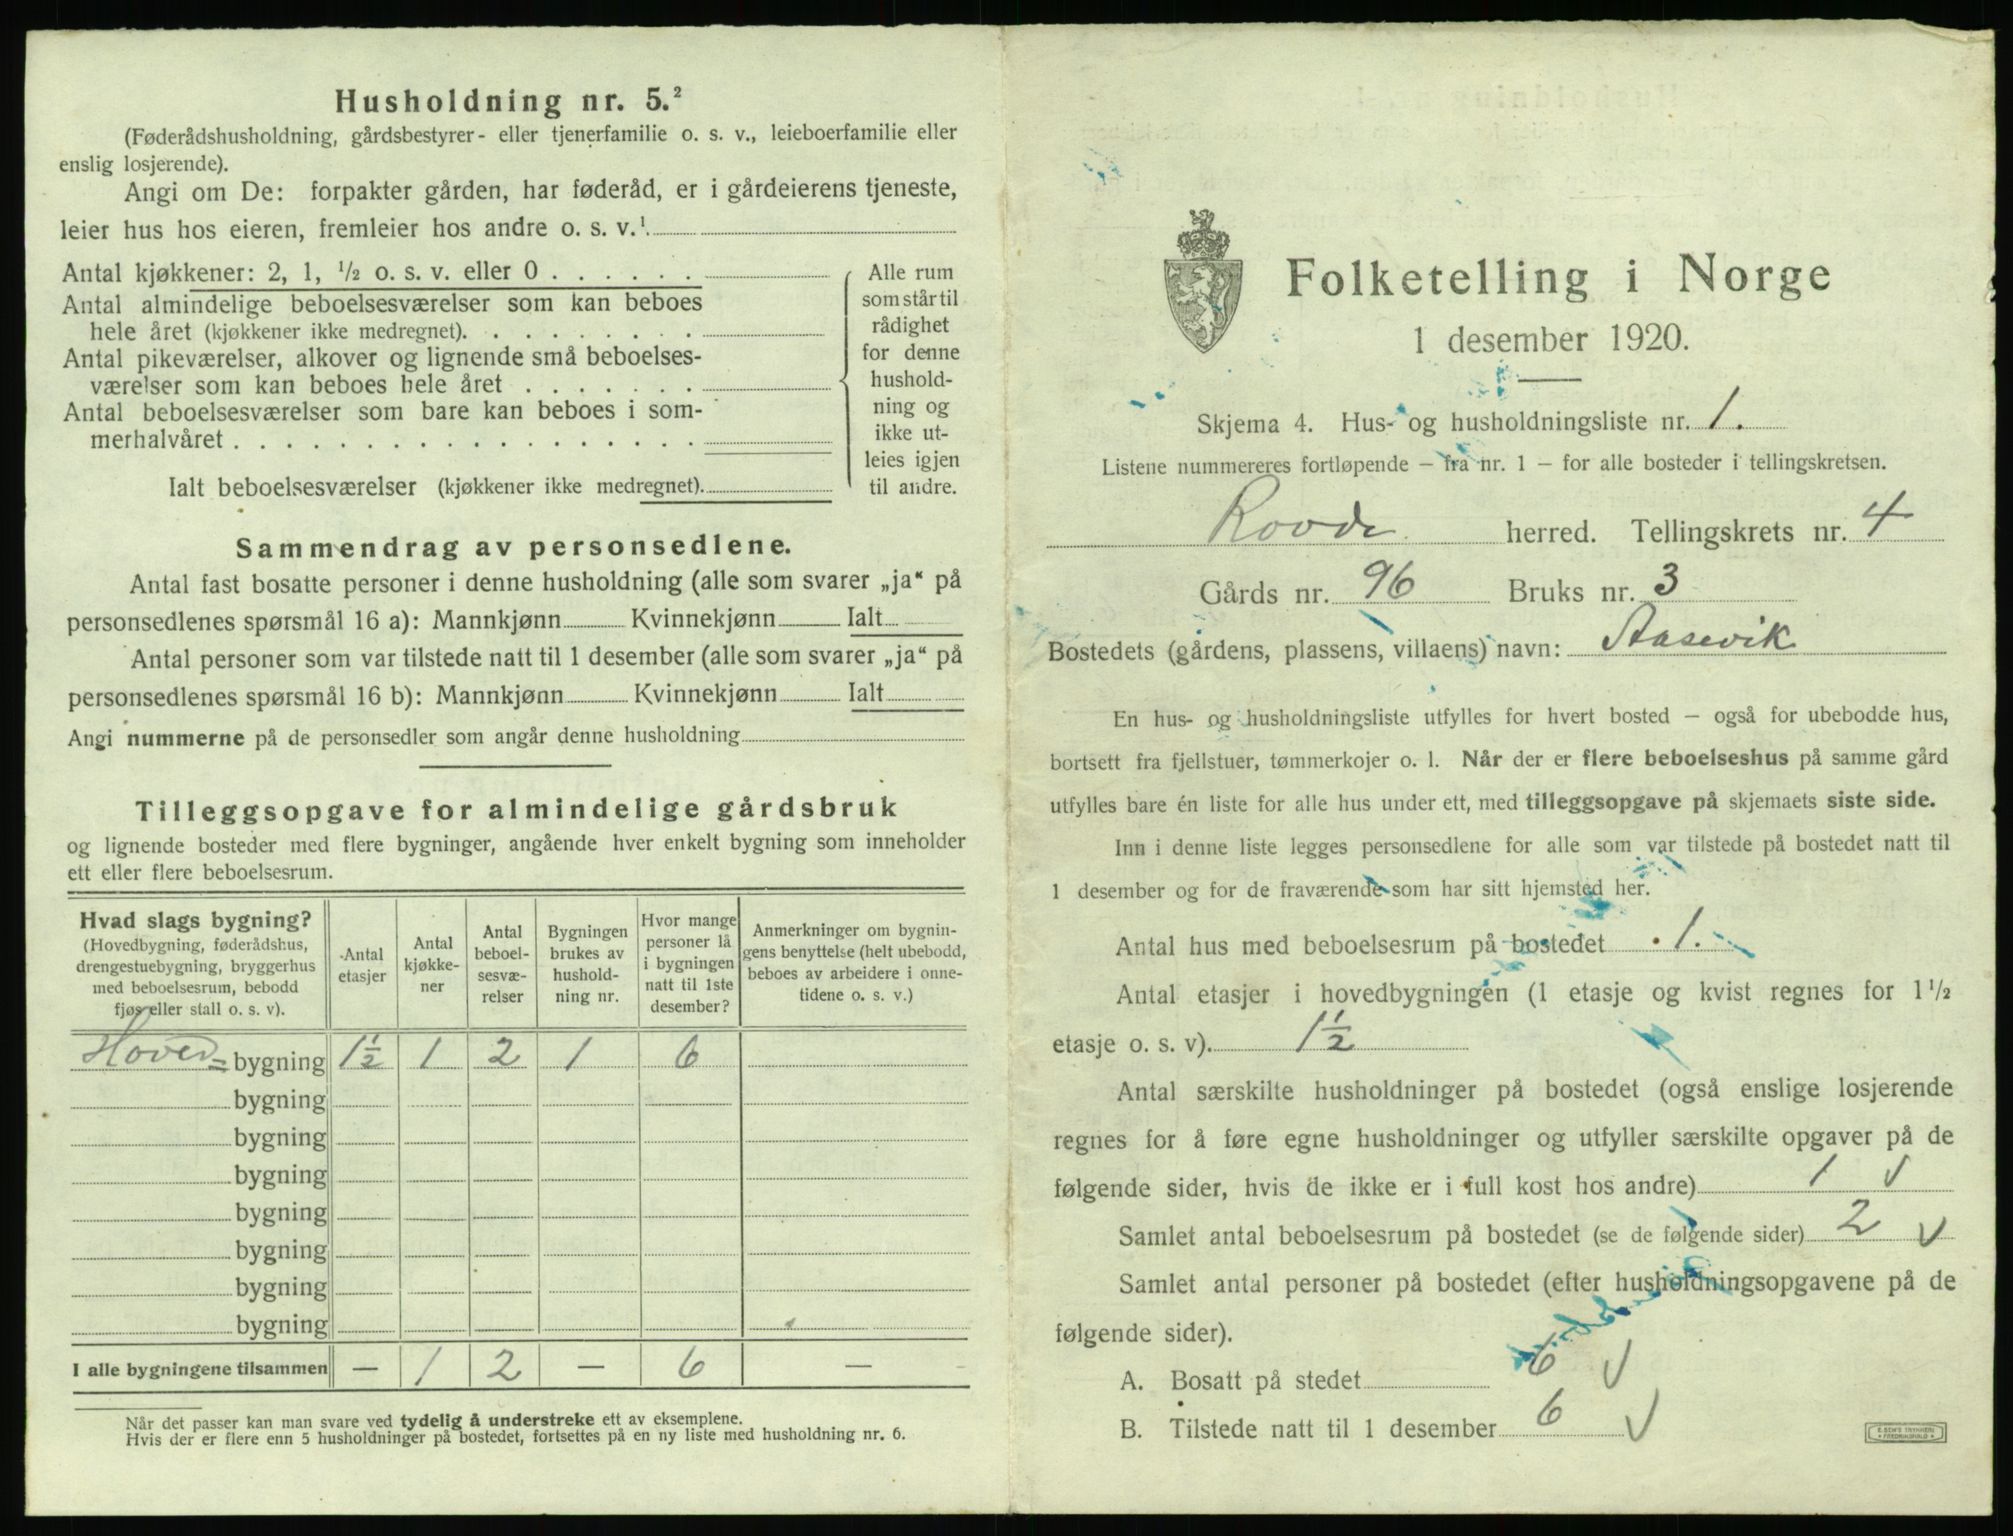 Husholdning nr. 5.²
(Føderådshusholdning, gårdsbestyrer- eller tjenerfamilie o. s. v., leieboerfamilie eller
enslig losjerende).
Angi om De: forpakter gården, har føderåd, er i gårdeierens tjeneste,
leier hus hos eieren, fremleier hos andre o. s. v.¹
Antal kjøkkener: 2, 1, ½ o. s. v. eller 0 . . . . . .
Antal almindelige beboelsesværelser som kan beboes
hele året (kjøkkener ikke medregnet). . . . . . . .
Antal pikeværelser, alkover og lignende små beboelses-
værelser som kan beboes hele året . . . . . . .
Antal beboelsesværelser som bare kan beboes i som-
merhalvåret . . . . . . . . . . . . . . . . . .
Ialt beboelsesværelser (kjøkkener ikke medregnet).
Alle rum
som står til
rådighet
for denne
hushold-
ning og
ikke ut-
leies igjen
til andre.
Sammendrag av personsedlene.
Antal fast bosatte personer i denne husholdning (alle som svarer „ja“ på
personsedlenes spørsmål 16 a): Mannkjønn Kvinnekjønn Ialt
Antal personer som var tilstede natt til 1 desember (alle som svarer „ja“ på
personsedlenes spørsmål 16 b): Mannkjønn Kvinnekjønn Ialt
Angi nummerne på de personsedler som angår denne husholdning
Tilleggsopgave for almindelige gårdsbruk
og lignende bosteder med flere bygninger, angående hver enkelt bygning som inneholder
ett eller flere beboelsesrum.
Hvad slags bygning?
(Hovedbygning, føderådshus,
drengestuebygning, bryggerhus
med beboelsesrum, bebodd
fjøs eller stall o. s. v).
Antal
etasjer
Antal
kjøkke-
ner
Antal
beboel-
sesvæ-
relser
Bygningen
brukes av
hushold-
ning nr.
Hvor mange
personer lå
i bygningen
natt til 1ste
desember?
Anmerkninger om bygnin-
gens benyttelse (helt ubebodd,
beboes av arbeidere i onne-
tidene o. s. v.)
Hoved= bygning 1½ 1 2 1 6
bygning
bygning
bygning
bygning
bygning
bygning
bygning
I alle bygningene tilsammen — 1 2 — 6 —
Når det passer kan man svare ved tydelig å understreke ett av eksemplene.
Hvis der er flere enn 5 husholdninger på bostedet, fortsettes på en ny liste med husholdning nr. 6.
Folketelling i Norge
1 desember 1920.
Skjema 4. Hus- og husholdningsliste nr. 1.
Listene nummereres fortløpende – fra nr. 1 – for alle bosteder i tellingskretsen.
Rovde herred. Tellingskrets nr. 4
Gårds nr. 96 Bruks nr. 3
Bostedets (gårdens, plassens, villaens) navn: Aasevik
En hus- og husholdningsliste utfylles for hvert bosted – også for ubebodde hus,
bortsett fra fjellstuer, tømmerkojer o. l. Når der er flere beboelseshus på samme gård
utfylles bare én liste for alle hus under ett, med tilleggsopgave på skjemaets siste side.
Inn i denne liste legges personsedlene for alle som var tilstede på bostedet natt til
1 desember og for de fraværende som har sitt hjemsted her.
Antal hus med beboelsesrum på bostedet 1.
Antal etasjer i hovedbygningen (1 etasje og kvist regnes for 1½
etasje o. s. v). 1½
Antal særskilte husholdninger på bostedet (også enslige losjerende
regnes for å føre egne husholdninger og utfyller særskilte opgaver på de
følgende sider, hvis de ikke er i full kost hos andre) 1 √
Samlet antal beboelsesrum på bostedet (se de følgende sider) 2 √
Samlet antal personer på bostedet (efter husholdningsopgavene på de
følgende sider).
A. Bosatt på stedet 6 √
B. Tilstede natt til 1 desember 6 √
E. SEM'S TRYKKERI
• FREDRIKSHALD •